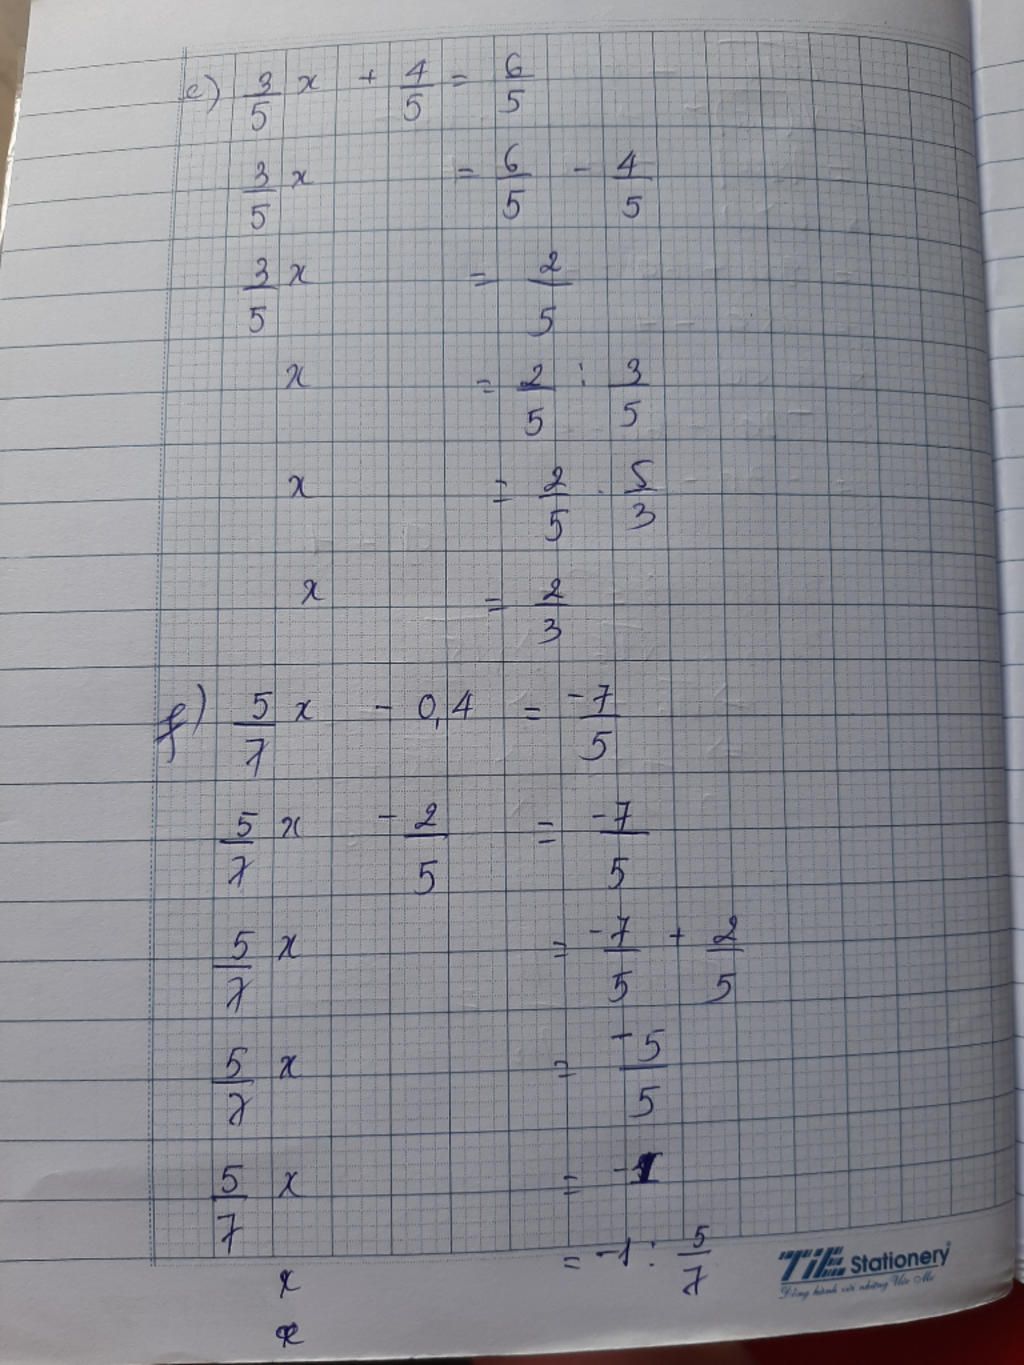 e) 3/5 x + 4/5 = 6/5
3/5 x = 6/5 - 4/5
3/5 x = 2/5
x = 2/5 : 3/5
x = 2/5 . 5/3
x = 2/3
f) 5/7 x - 0,4 = -7/5
5/7 x - 2/5 = -7/5
5/7 x = -7/5 + 2/5
5/7 x = -5/5
5/7 x = -1
x = -1 : 5/7
x
TiE Stationery
Đồng hành với những Ước Mơ